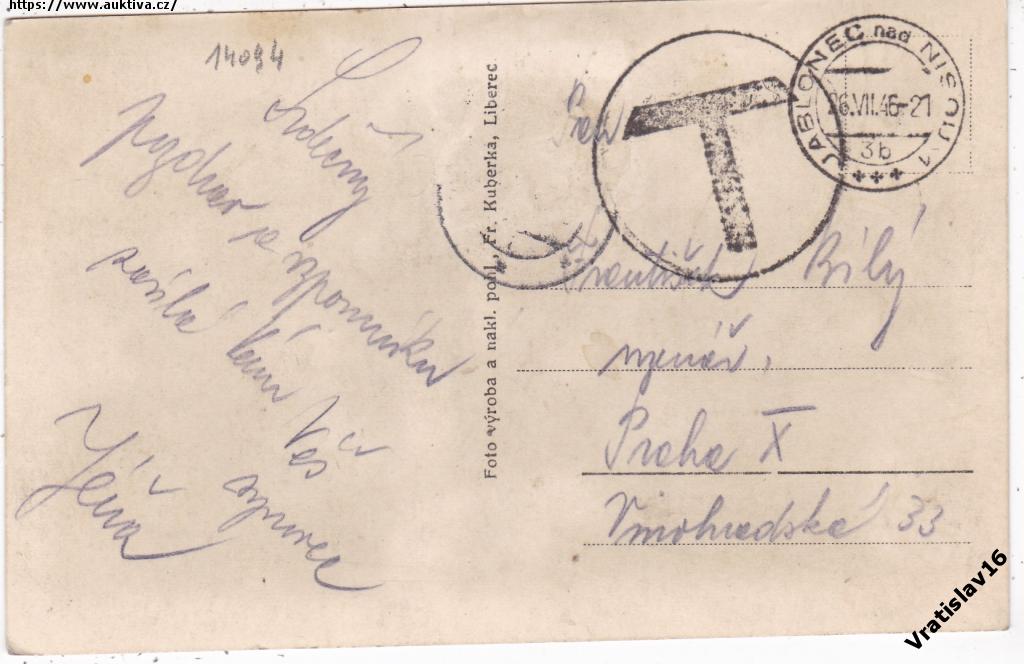 https://www.auktiva.cz/
14094
Srdečný
pozdrav a
vzpomínku
zasílá Vám Váš
synovec
Jéňa
Foto výroba a nakl. pohl., Fr. Kuberka, Liberec
T
JABLONEC nad NISOU 1
26.VII.46-21
3b
Pan
František Bílý
Praha X
Vinohradská 33
Vratislav16